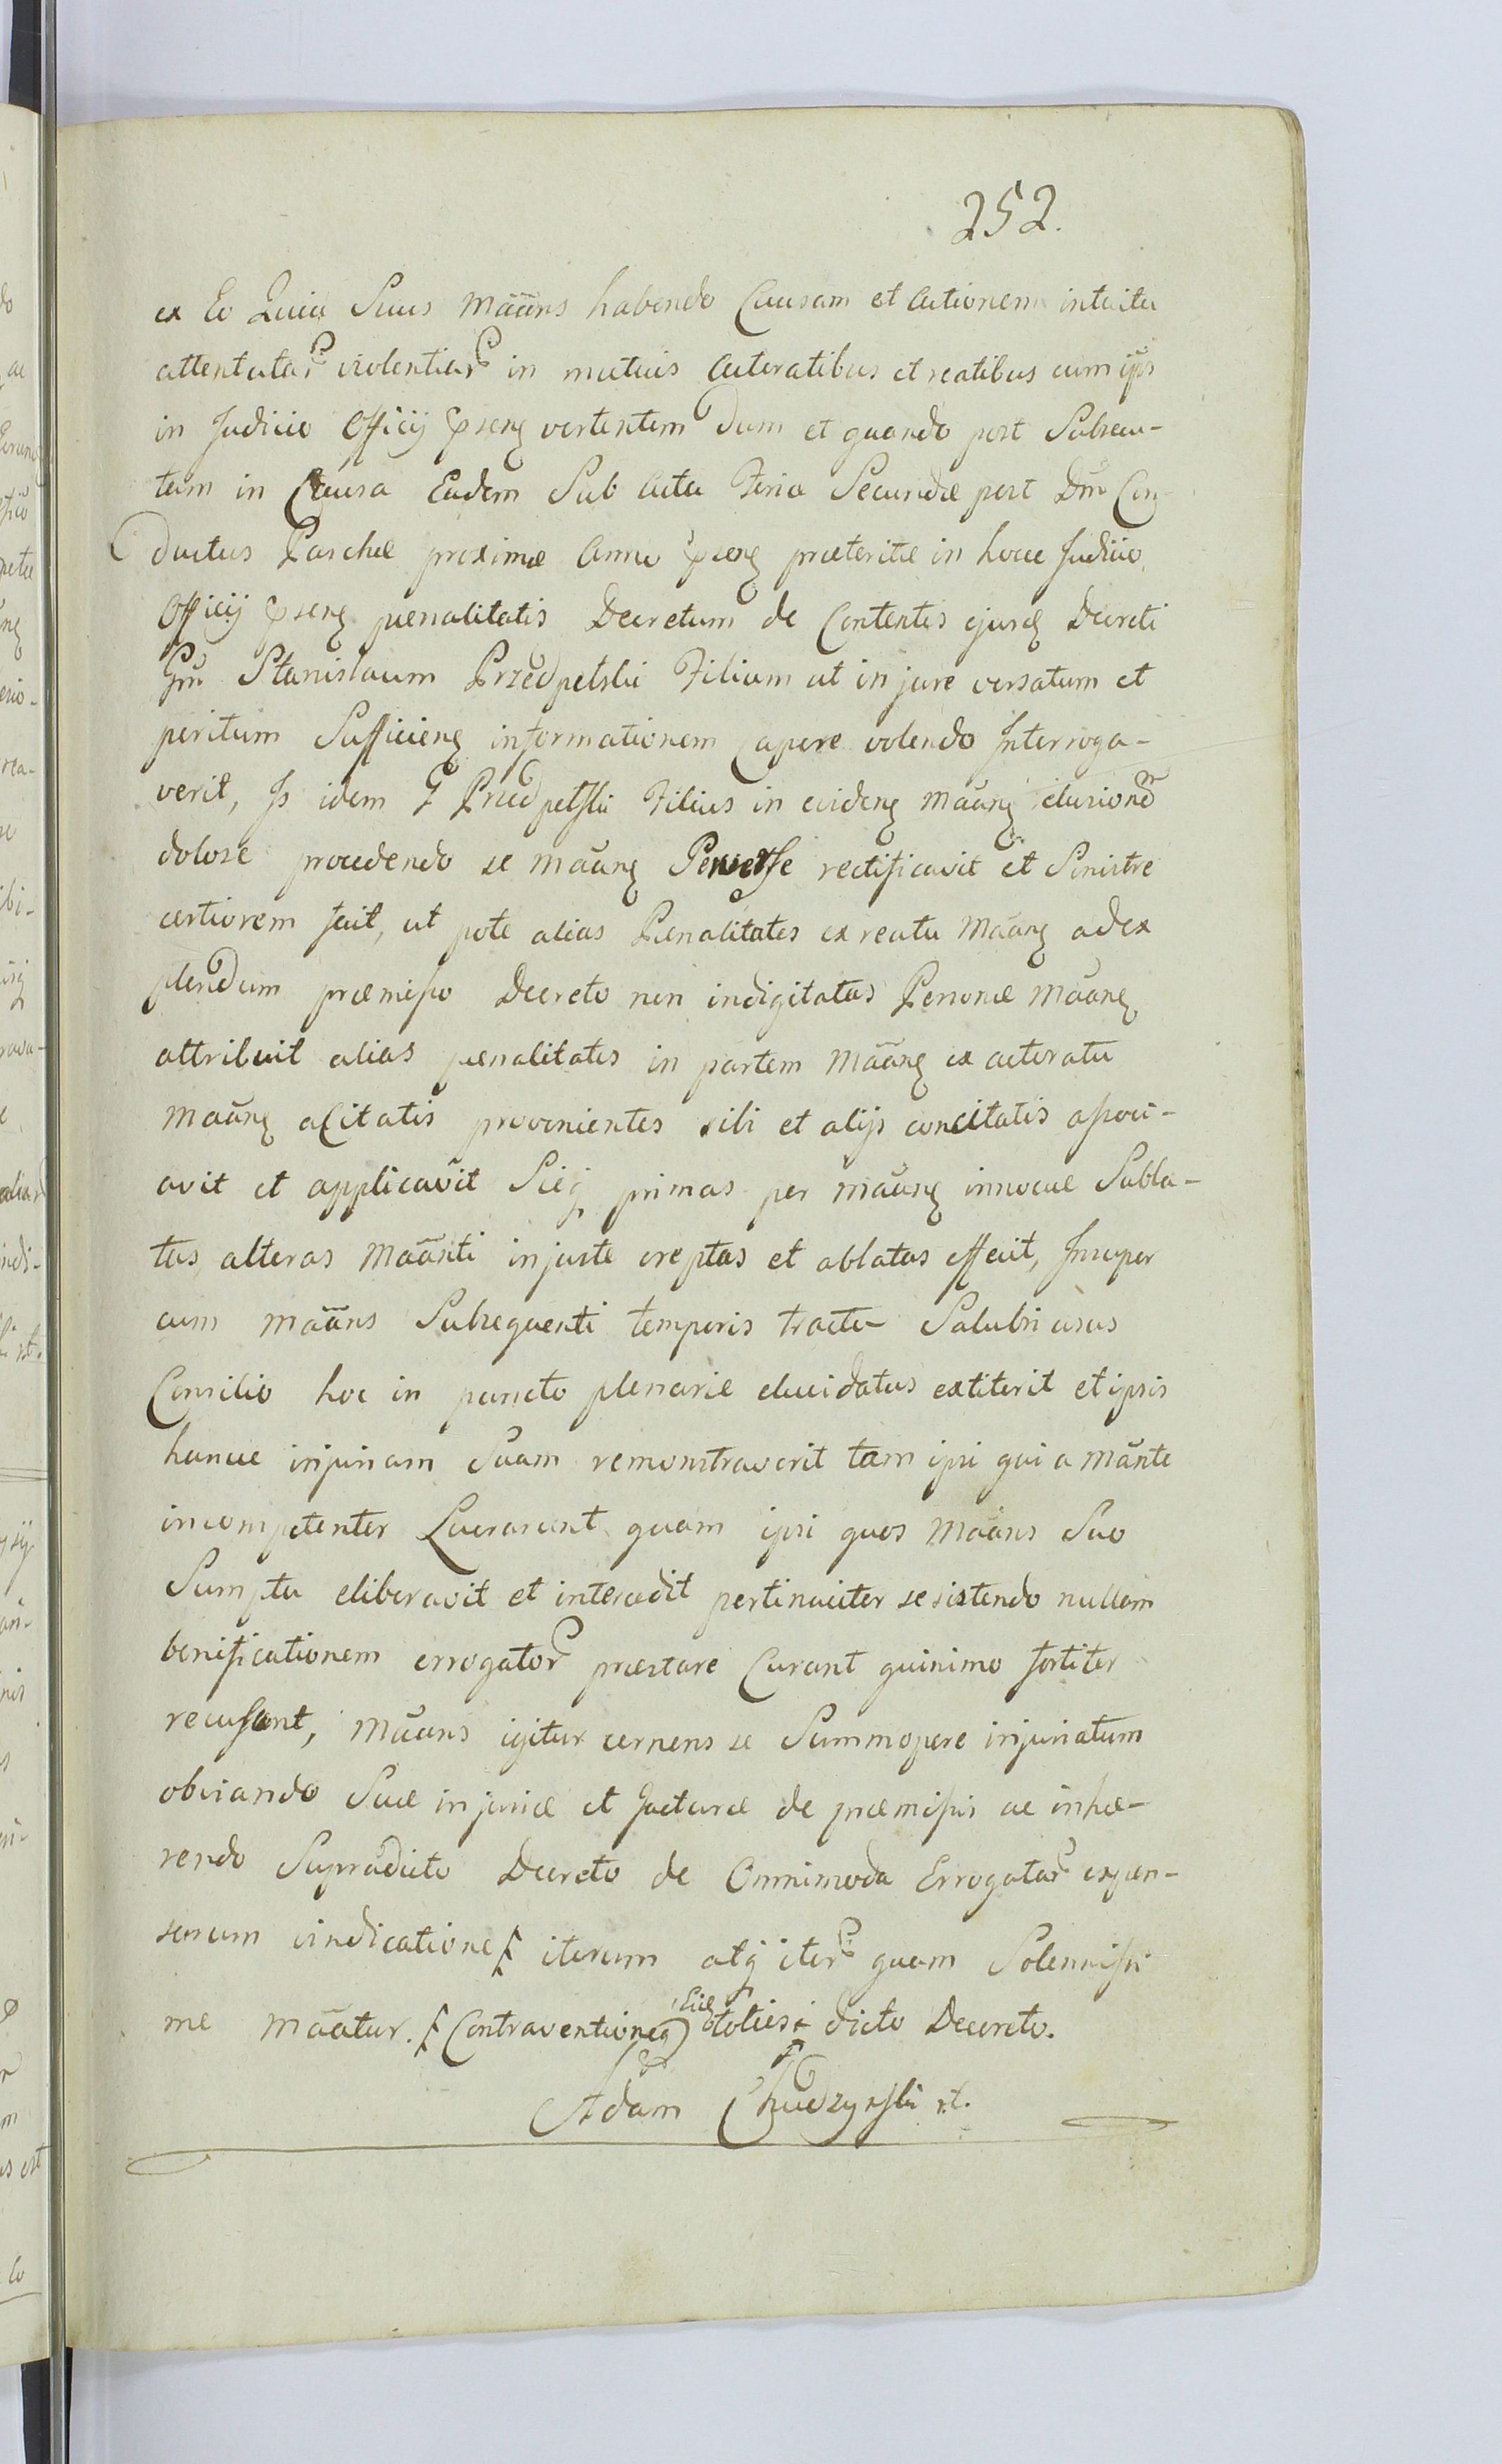 252.
ex Eo Quia Suus Mãans habendo Causam et Actionem intuitu
attentatar violentiar in mutuis Acteratibus et reatibus cum ijs
in Judicio Officij prsens vertentem dum et quando post Subsecu-
tum in Causa Eadem Sub Actu Feria Secunda post Dm̃ Con-
ductus Paschæ proximæ Anno prsens præteritæ in hocce Judicio
Officij prsens pænalitatis Decretum de Contentis ejusd Decreti
Gm̃ Stanislaum Przedpelski Filium ut in jure versatum et
peritum Sufficiens informationem Capere volendo Interroga-
verit, Is idem G Przedpelski Filius in evidens mãans elusionem
dolose procedendo se mãans Perverse rectificavit et Sinistre
certiorem fecit, ut pote alias Pænalitates ex reatu Mãans adex
plendum præmisso Decreto non indigitatas Personæ Mãans
attribuit alias pænalitates in partem Mãans ex acteratu
Mãans a Citatis provenientes sibi et alijs concitatis associ-
avit et applicavit Sicq primas per mãans innocue Subla-
tas, alteras Mãanti injuste ereptas et ablatas effecit, Insuper
cum mãans Subsequenti temporis tractu Salubri usus
Consilio hoc in puncto plenarie elucidatus extiterit et ipsis
hancce injuriam Suam remonstraverit tam ipsi qui a Mãnte
incompetenter Lucrarunt quam ipsi quos Mãans Suo
Sumptu eliberavit et intercedit pertinaciter se sistendo nullam
bonificationem errogator præstare Curant quinimo fortiter
recusant, Mãans igitur cernens se Summopere injuriatum
obviando Suæ injuriæ et Jacturæ de præmissis ac inhæ-
rendo Supradicto Decreto de Omnimoda Errogatar expen-
sarum vindicatione iterum atq iter quam Solennissi
me mãatur. Contraventioneq Eid toties dicto Decreto.
Adam Chudzynski rt.